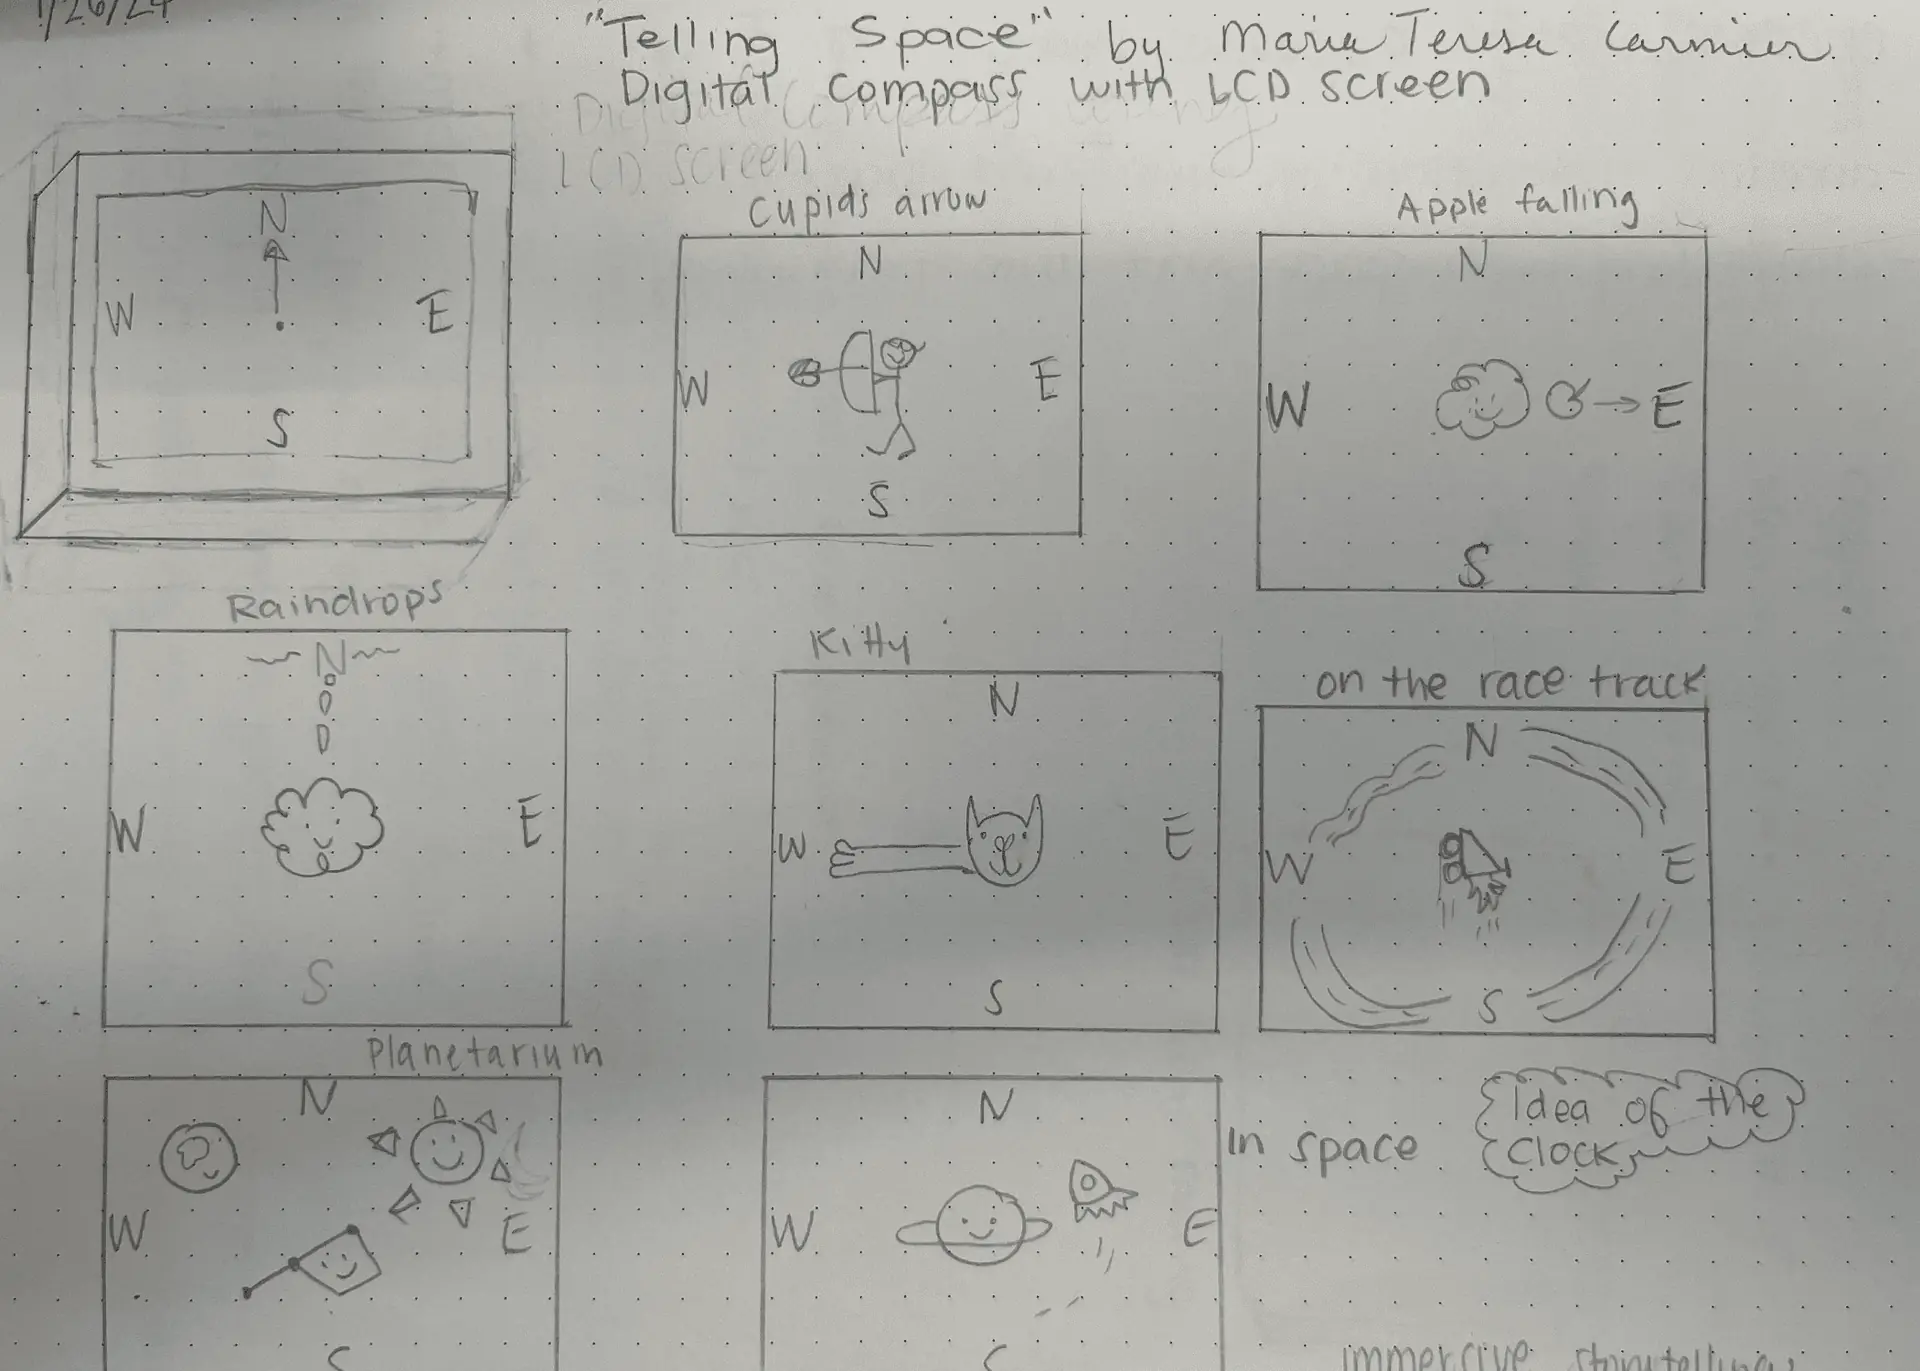 1/26/24
"Telling Space" by Maria Teresa Carmier
Digital Compass with LCD screen
Digital Compass using
LCD screen
N
W E
S
Cupids arrow
N
W E
S
Apple falling
N
W E
S
Raindrops
N
W E
S
Kitty
N
W E
S
on the race track
N
W E
S
Planetarium
N
W E
S
In space
N
W E
S
Idea of the
Clock
immersive storytelling